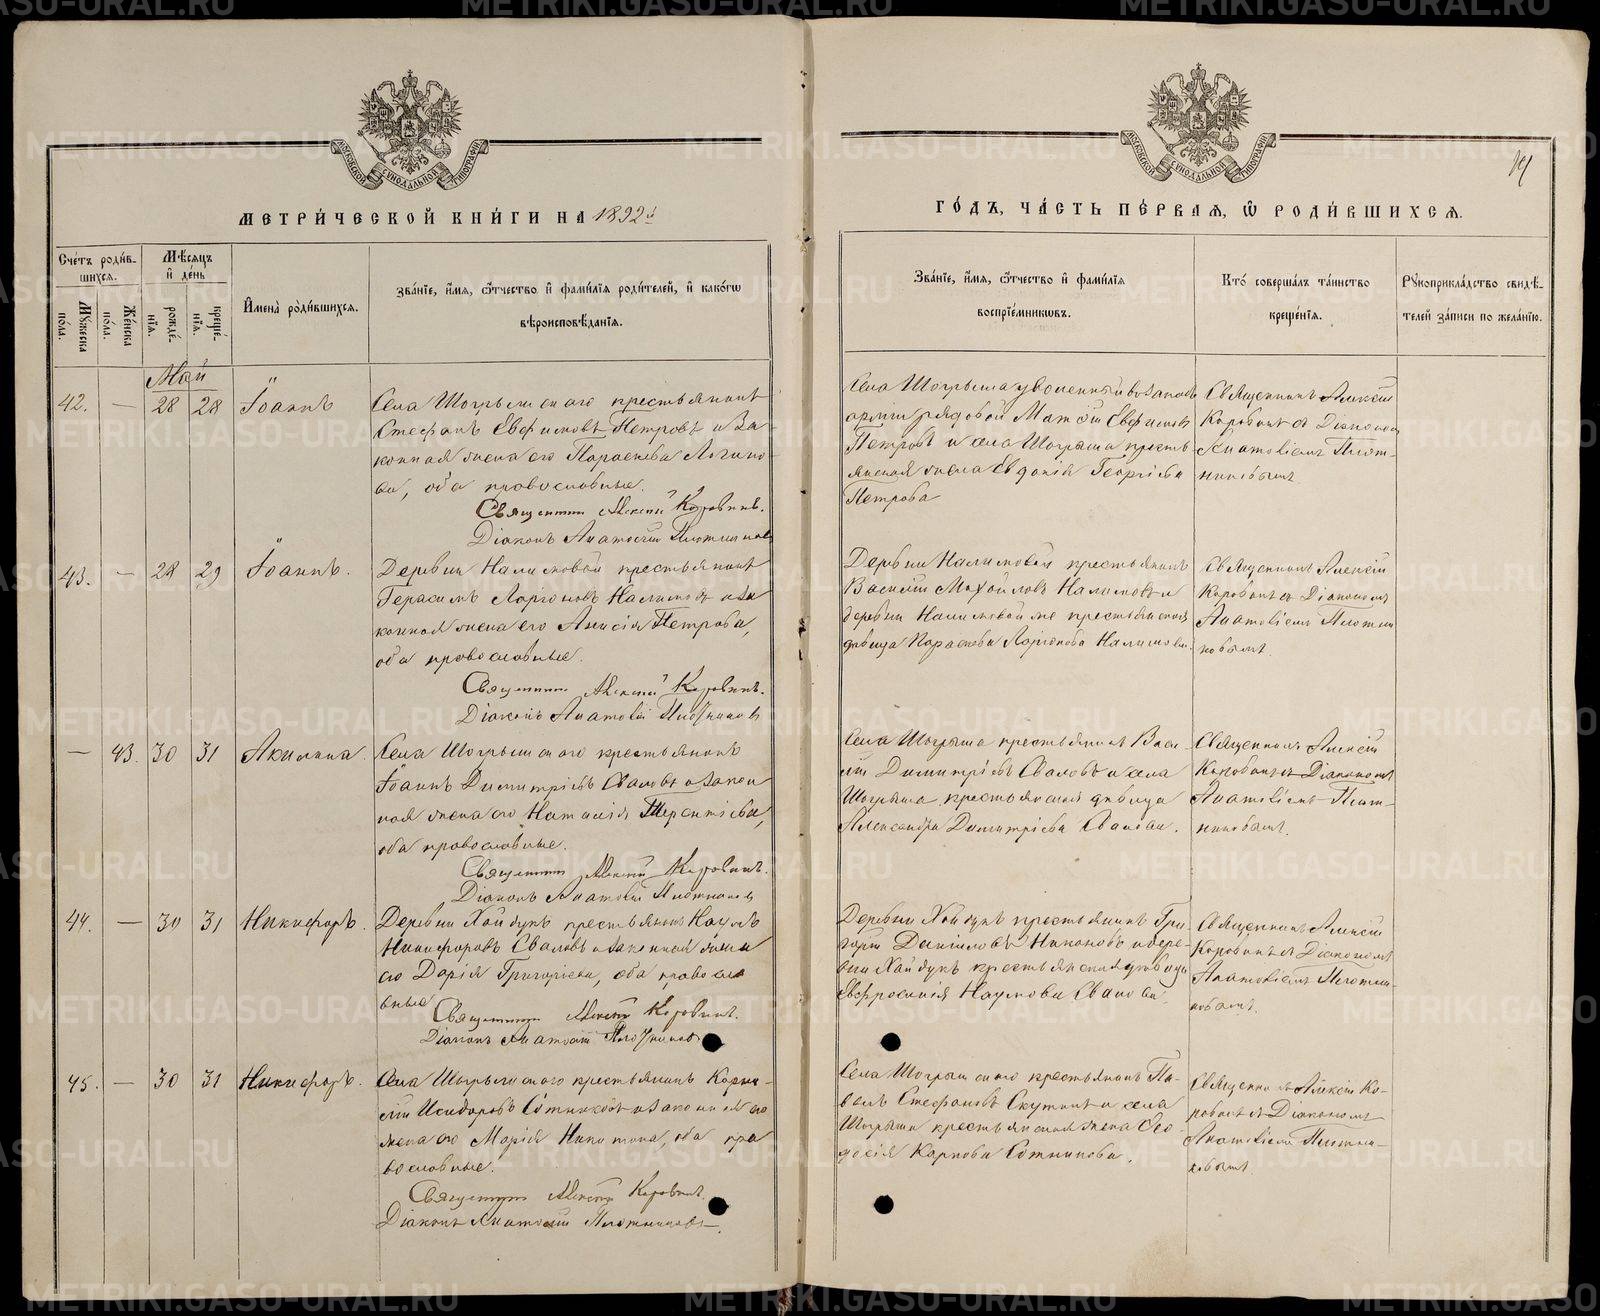 МЕТРИ́ЧЕСКОЙ КНИ́ГИ НА 1892й
Сче́тъ роди́в-
шихся.
Мѣ́сяцъ
и де́нь
Мꙋ́жеска
по́ла.
Же́нска
по́ла.
рожде́-
нїя.
креще́-
нїя.
И́мена роди́вшихся.
Зва́нїе, и́мя, ѻ҆́тчество и фами́лїя роди́телей, и како́гѡ
вѣроисповѣ́данїя.
Май
42. — 28 28 Іоаннъ
Села Шогрышскаго крестьянинъ
Стефанъ Евфимовъ Петровъ и за-
конная жена его Параскева Логино-
ва, оба православные.
Священникъ Алексій Коровинъ.
Діаконъ Анатолій Плотниковъ
43. — 28 29 Іоаннъ.
Деревни Налимовой крестьянинъ
Герасимъ Ларіоновъ Налимовъ и за
конная жена его Анисія Петрова,
оба православные.
Священникъ Алексій Коровинъ.
Діаконъ Анатолій Плотниковъ
— 43. 30 31 Акилина.
Села Шогрышскаго крестьянинъ
Іоаннъ Димитріевъ Сваловъ и закон
ная жена его Наталія Терентіева,
оба православные.
Священникъ Алексій Коровинъ.
Діаконъ Анатолій Плотниковъ
44. — 30 31 Никифоръ.
Деревни Хайдукъ крестьянинъ Наумъ
Никифоровъ Сваловъ и законная жена
его Дарія Григоріева, оба правосла
вные
Священникъ Алексій Коровинъ.
Діаконъ Анатолій Плотниковъ
45. — 30 31 Никифоръ.
Села Шогрышскаго крестьянинъ Корни-
лій Исидоровъ Сотниковъ и законная
жена его Марія Никитина, оба пра
вославные.
Священникъ Алексій Коровинъ.
Діаконъ Анатолій Плотниковъ
ГО́ДЪ, ЧА́СТЬ ПЕ́РВАЯ, Ѡ҆ РОДИ́ВШИХСЯ.
Зва́нїе, и́мя, ѻ҆́тчество и фами́лїя
воспрїе́мниковъ.
Кто́ соверша́лъ та́инство
креще́нїя.
Рꙋкоприкла́дство свидѣ́-
телей за́писи по жела́нїю.
Села Шогрыша уволенный въ запасъ
арміи рядовой Матѳій Евфимовъ
Петровъ и села Шогрыша кресть-
янская жена Евдокія Георгіева
Петрова
Священникъ Алексій
Коровинъ съ Діакономъ
Анатоліемъ Плот-
никовымъ.
Деревни Налимовой крестьянинъ
Василій Михайловъ Налимовъ и
деревни Налимовой же крестьянская
дѣвица Параскева Ларіонова Налимова.
Священникъ Алексій
Коровинъ съ Діакономъ
Анатоліемъ Плотни
ковымъ.
Села Шогрыша крестьянинъ Васи-
лій Димитріевъ Сваловъ и села
Шогрыша крестьянская дѣвица
Александра Димитріева Свалова.
Священникъ Алексій
Коровинъ съ Діакономъ
Анатоліемъ Плот-
никовымъ.
Деревни Хайдукъ крестьянинъ Гри-
горій Даніиловъ Никоновъ и дере-
вни Хайдукъ крестьянская дѣвица
Евфросинія Наумова Свалова.
Священникъ Алексій
Коровинъ съ Діакономъ
Анатоліемъ Плотни-
ковымъ.
Села Шогрышскаго крестьянинъ Па-
велъ Стефановъ Скутинъ и села
Шогрыша крестьянская жена Ѳео-
досія Карпова Сотникова.
Священникъ Алексій Ко-
ровинъ съ Діакономъ
Анатоліемъ Плотни-
ковымъ.
METRIKI.GASO-URAL.RU